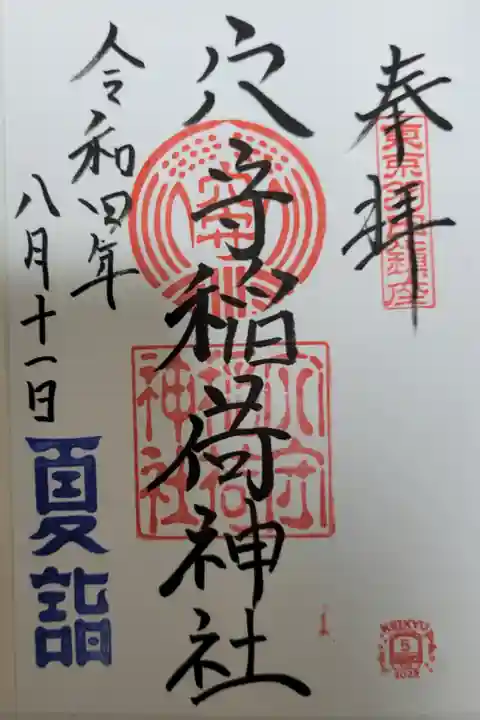 奉拝
東京羽田鎮座
穴守稲荷神社
穴守
稲荷
神社
令和四年
八月十一日
夏詣
KEIKYU
5
2022